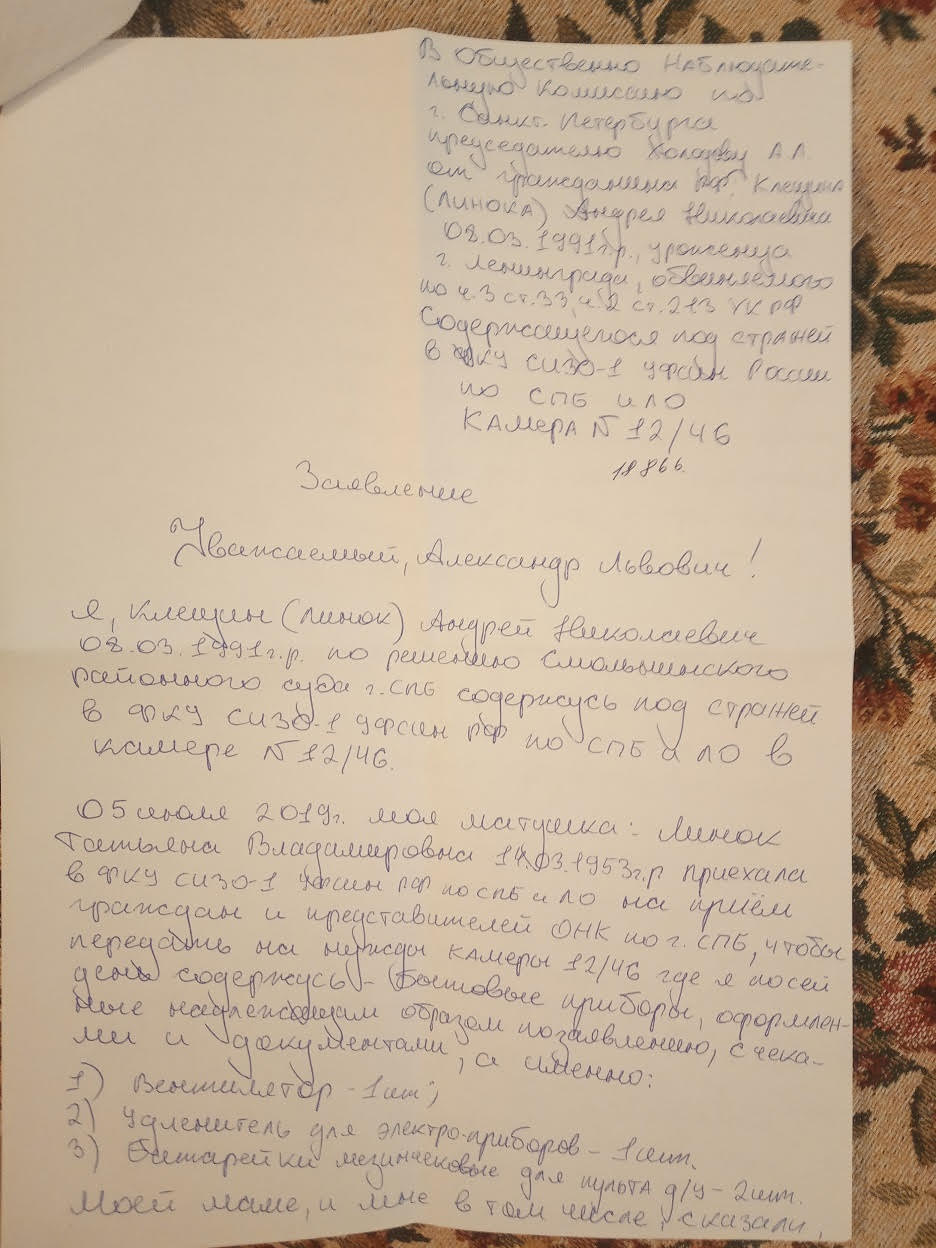 В Общественно Наблюдате-
льную комиссию по
г. Санкт-Петербурга
председателю Холодову А.Л.
от гражданина РФ, Клещина
(ЛИНОКА) Андрея Николаевича
08.03.1991г.р., уроженца
г. Ленинграда, обвиняемого
по ч.3 ст.33, ч.2 ст.213 УК РФ
Содержащегося под стражей
в ФКУ СИЗО-1 УФСИН России
по СПБ и ЛО
КАМЕРА N 12/46
Заявление
Уважаемый, Александр Львович!
Я, Клещин (Линок) Андрей Николаевич
08.03.1991г.р. по решению Смольнинского
районного суда г. СПБ содержусь под стражей
в ФКУ СИЗО-1 УФСИН РФ по СПБ и ЛО в
камере N 12/46.
05 июля 2019г. моя матушка: Линок
Татьяна Владимировна 14.03.1953г.р приехала
в ФКУ СИЗО-1 УФСИН РФ по СПБ и ЛО на приём
граждан и представителей ОНК по г. СПБ, чтобы
передать на нужды камеры 12/46 где я по сей
день содержусь - бытовые приборы, оформлен-
ные надлежащим образом по заявлению, с чека-
ми и документами, а именно:
1) Вентилятор - 1шт;
2) Удленитель для электро-приборов - 1шт.
3) Батарейки мезинчековые для пульта д/у - 2шт.
Моей маме, и мне в том числе, сказали,